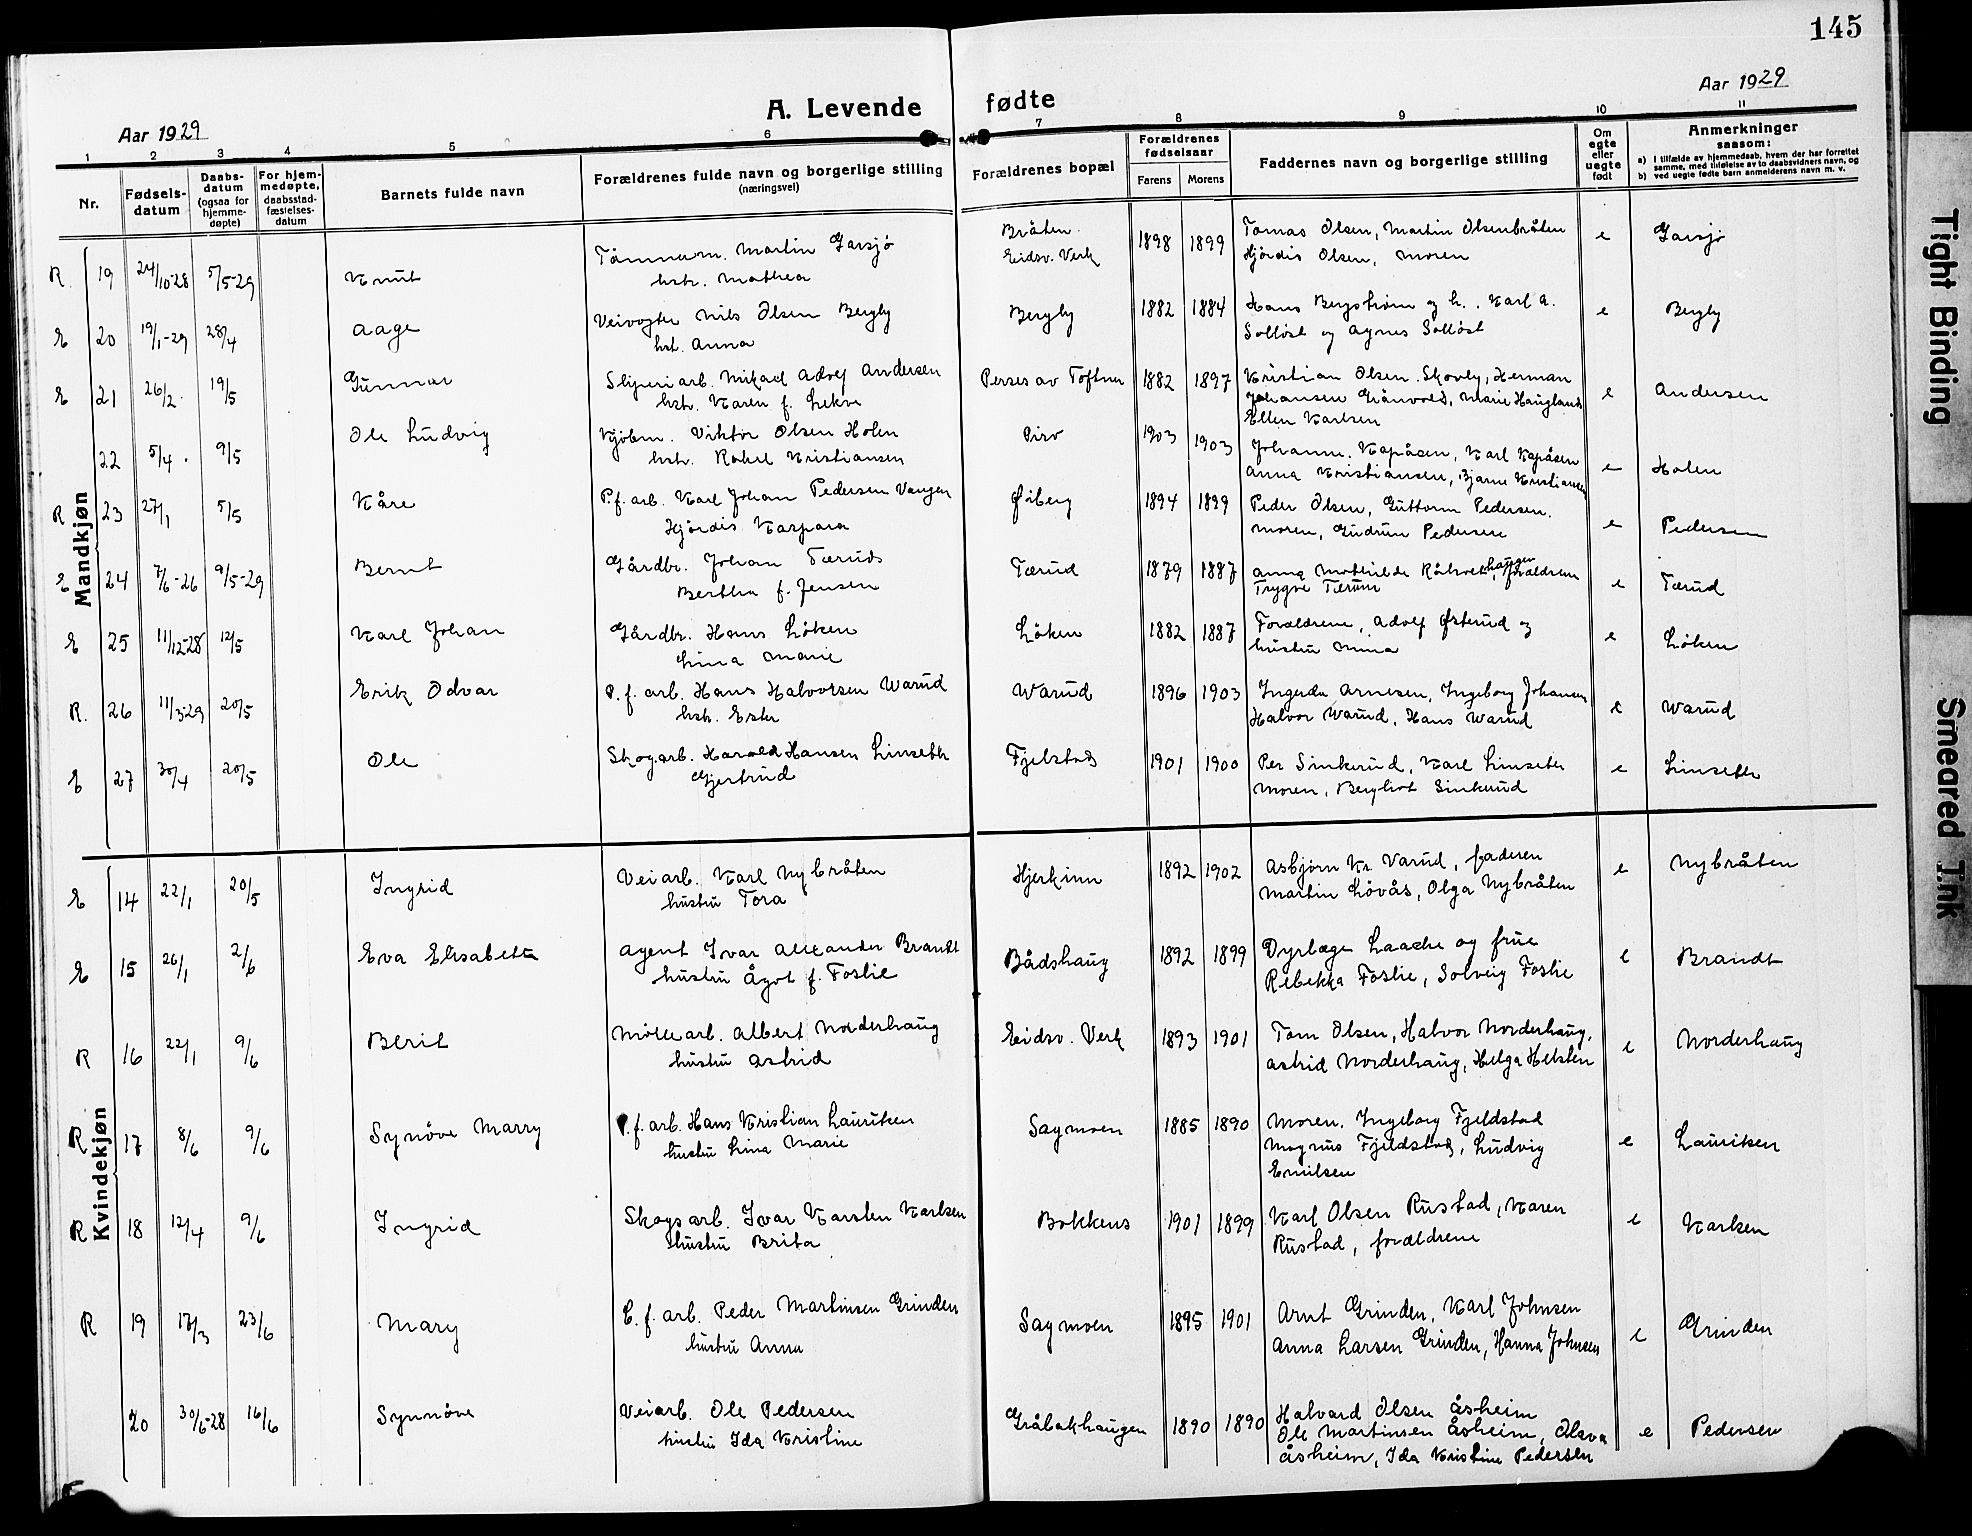 145
Aar 1929
A. Levende fødte
Aar 1929
1 2 3 4 5 6 7 8 9 10 11
Nr.
Fødsels-
datum
Daabs-
datum
(ogsaa for
hjemme-
døpte)
For hjem-
medøpte,
daabsstad-
fæstelses-
datum
Barnets fulde navn
Forældrenes fulde navn og borgerlige stilling
(næringsvei)
Forældrenes bopæl
Forældrenes
fødselsaar
Farens Morens
Faddernes navn og borgerlige stilling
Om
egte
eller
uegte
født
Anmerkninger
saasom:
a) I tilfælde av hjemmedaab, hvem der har forrettet
samme, med tilføielse av to daabsvidners navn, og
b) ved uegte fødte barn anmelderens navn m. v.
Mandkjøn
R. 19 24/10-28 5/5-29 Knut Tømmerm. Martin Garsjø Bråten. 1898 1899 Tomas Olsen, Martin Olsenbråten e Garsjø
hstr. Mathea Eidsv. Verk Hjørdis Olsen, moren
E 20 19/1-29 28/4 Aage Veivogter Nils Olsen Bergby Bergby 1882 1884 Hans Bergstrøm og h.. Karl A. e Bergby
hst. Anna Solløst og Agnes Solløst
E 21 26/2. 19/5 Gunnar Sliperiarb. Mikael Adolf Andersen Perses av Toftner 1882 1897 Kristian Olsen Skovly, Herman e Andersen
hstr. Karen f. Lekve Johansen Grånvold, Marie Haugland
Ellen Karlsen
22 5/4. 9/5 Ole Ludvig Kjøbm. Viktor Olsen Holen Piro 1903 1903 Johanne Kapåsen, Karl Kapåsen e Holen
hstr. Rakel Kristiansen Anna Kristiansen, Bjarne Kristiansen
R 23 27/1 5/5 Kåre P.f. arb. Karl Johan Pedersen Vangen Øiberg 1894 1899 Peder Olsen, Guttorm Pedersen. e Pedersen
Hjørdis Kaspara moren, Gudrun Pedersen
E 24 7/6-26 9/5-29 Bernt Gårdbr. Johan Tærud Tærud 1879 1887 Anna Mathilde haugen, forældrene e Tærud
Bertha f. Jensen Trygve Tærum
E 25 11/12-28 12/5 Karl Johan Gårdbr. Hans Løken Løken 1882 1887 Forældrene, Adolf Østerud og e Løken
Lina Marie hustru Mina
R. 26 11/3-29 20/5 Erik Odvar P.f. arb. Hans Halvorsen Warud Warud 1896 1903 Ingerda Arnesen, Ingeborg Johansen e Warud
hstr. Ester Halvor Warud, Hans Warud
E 27 30/4 20/5 Ole Skogarb. Harald Hansen Linseth Fjelstad 1901 1900 Per Sinkerud, Karl Linseter e Linseth
Gjertrud Moren, Bergliot Sinkerud
Kvindekjøn
E 14 22/1 20/5 Ingrid Veiarb. Karl Nybråten Hjerkinn 1892 1902 Asbjørn Kr. Varud, faderen e Nybråten
hustru Tora Martin Løvås, Olga Nybråten
E 15 26/1 2/6 Eva Elisabeth Agent Ivar Alexander Brandt Bådshaug 1892 1899 Dyrlæge Laache og frue e Brandt
hustru Ågot f. Foslie Rebekka Foslie, Solveig Foslie
R 16 22/1 9/6 Berit Møllearb. Albert Norderhaug Eidsv. Verk 1893 1901 Tom Olsen, Halvor Norderhaug, e Norderhaug
hustru Astrid Astrid Norderhaug, Helga Helsten
R 17 8/6 9/6 Synøve Marry P.f. arb. Hans Kristian Lauritsen Sagmoen 1885 1890 Moren. Ingeborg Fjeldstad e Lauritsen
hustru Lina Marie Magnus Fjeldstad, Ludvig
Emilsen
R 18 12/4 9/6 Ingrid Skogsarb. Ivar Karsten Karlsen Bokkens 1901 1899 Karl Olsen Rustad, Karen e Karlsen
Hustru Brita Rustad, forældrene
R 19 17/3 23/6 Mary C. f. arb. Peder Martinsen Grinden Sagmoen 1895 1901 Arnt Grinden, Karl Johnsen e Grinden
hustru Anna Anna Larsen Grinden, Hanna Johnsen
20 30/6-28 16/6 Synnøve Veiarb. Ole Pedersen Gråbakhaugen 1890 1890 Halvard Olsen Åsheim e Pedersen
hustru Ida Kristine Ole Martinsen Åsheim, Olava
Åsheim, Ida Kristine Pedersen
Tight Binding
Smeared Ink